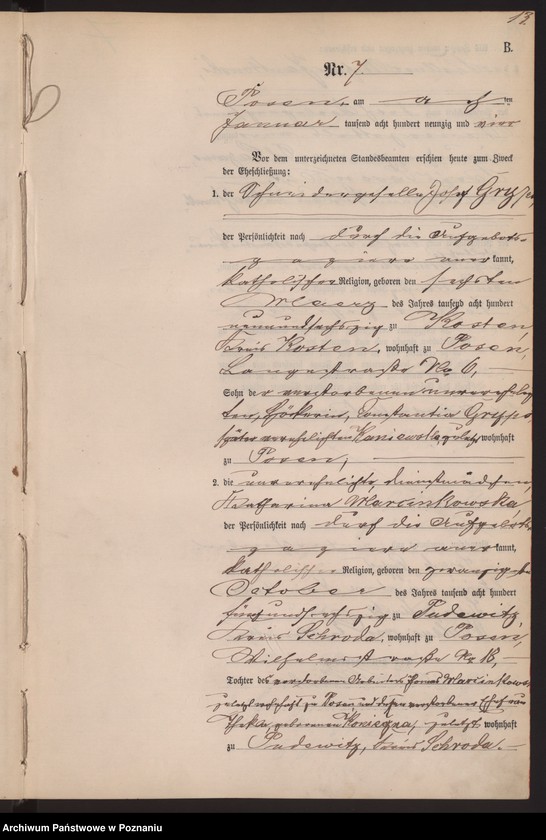 13.
B.
Nr. 7.
Posen, am acht ten
Januar tausend acht hundert neunzig und vier
Vor dem unterzeichneten Standesbeamten erschien heute zum Zweck
der Eheschließung:
1. der Schneidergeselle Josef
der Persönlichkeit nach durch die Aufgebots-
papiere anerkannt,
katholischer Religion, geboren den sechsten
Maerz des Jahres tausend acht hundert
neunundsechszig zu Kosten,
Kreis Kosten, wohnhaft zu Posen,
Langestraße No 6,
Sohn der verstorbenen unverehelich-
ten Constantia
später verehelichten zuletzt wohnhaft
zu Posen,
2. die unverehelichte, Dienstmädchen,
Katharina Marcinkowska
der Persönlichkeit nach durch die Aufgebots-
papiere anerkannt,
katholischer Religion, geboren den zwanzigsten
October des Jahres tausend acht hundert
fünfundsechszig zu Pudewitz,
Kreis Schroda, wohnhaft zu Posen,
Wilhelmsstraße No 18,
Tochter des verstorbenen Arbeiters Thomas Marcinkowski
zuletzt wohnhaft zu Posen, und dessen verstorbener Ehefrau
Thekla, geborenen Konieczna, zuletzt wohnhaft
zu Pudewitz, Kreis Schroda.
Archiwum Państwowe w Poznaniu